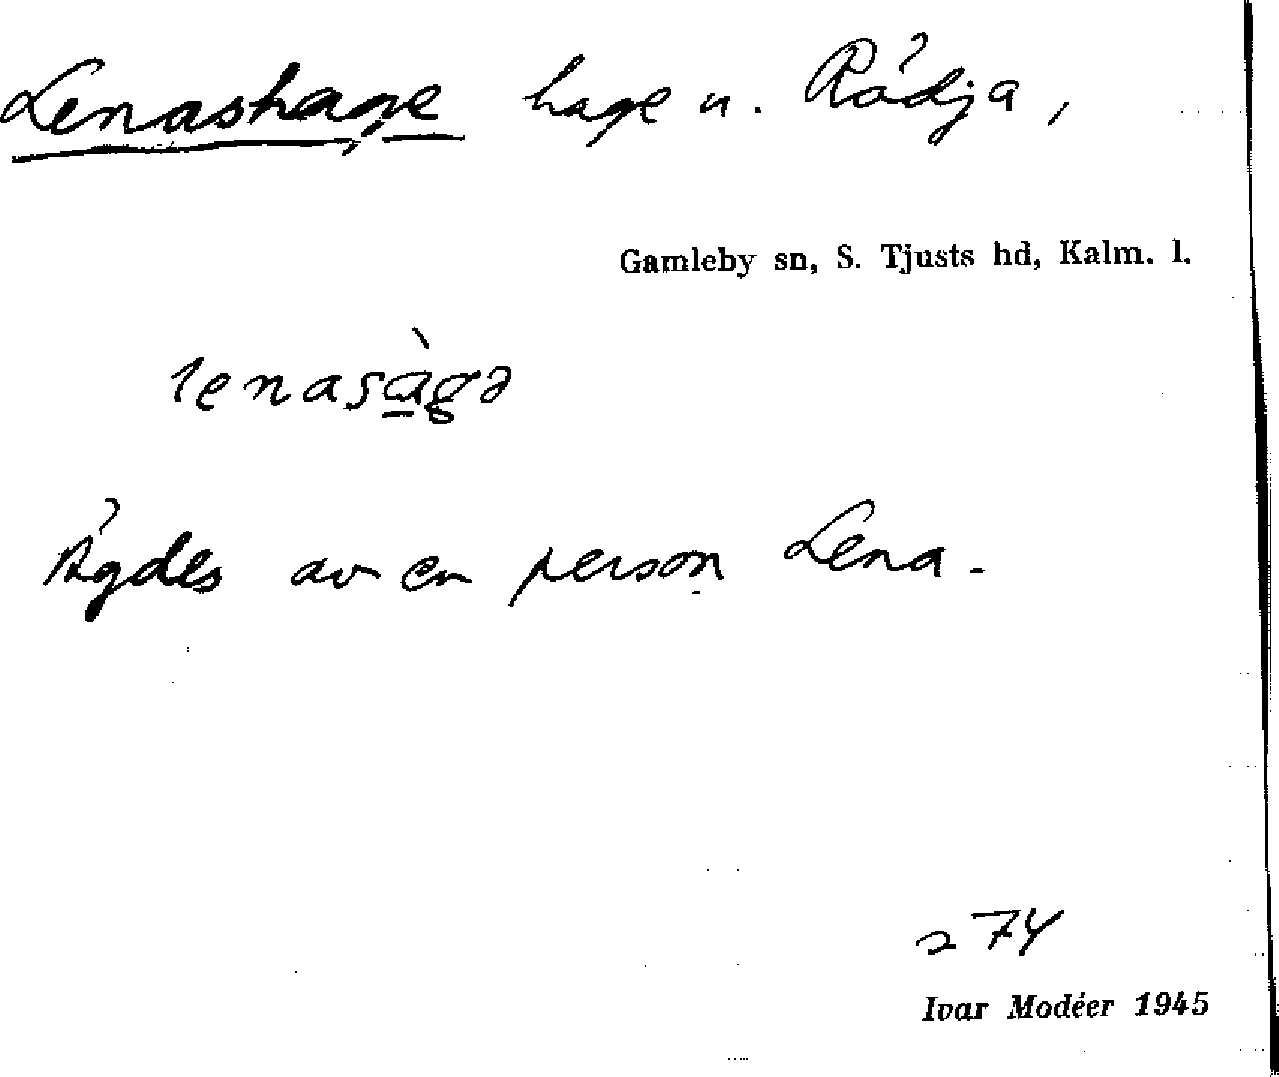 Lenashage hage u. Rödja,
Gamleby sn, S. Tjusts hd, Kalm. l.
lenasàgə
Ägdes av en person Lena.
274
Ivar Modéer 1945